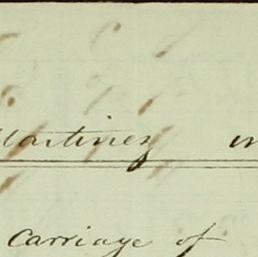 Martinez in
Carriage of